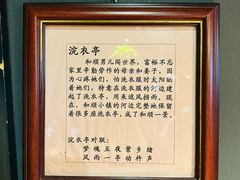 浣衣亭
和顺男儿闯世界，富裕不忘
家里辛勤劳作的母亲和妻子，因
为心疼她们，怕洗衣服时太阳晒
着她们，特意在洗衣服的河边建
起了洗衣亭，用来遮风挡雨。现
在，和顺小镇的河边完整地保留
着很多座洗衣亭，成了和顺一景。
浣衣亭对联：
梦魂五夜萦乡绪
风雨一亭动杵声